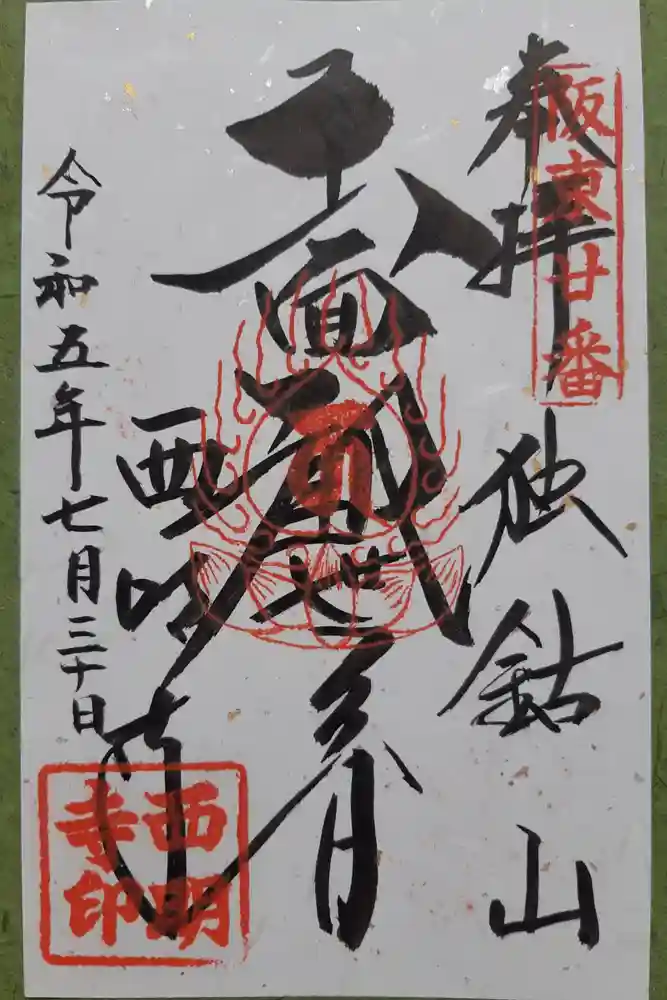 阪東廿番
奉拝
独鈷山
十一面観世音
西明寺
令和五年七月三十日
西明寺印